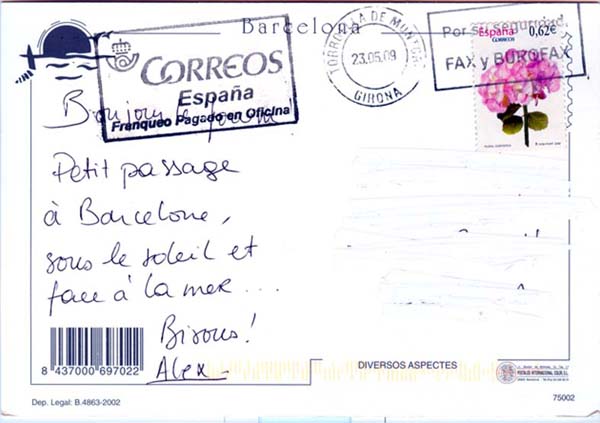 Barcelona
CORREOS
España
Franqueo Pagado en Oficina
TORROELLA DE MONTGRI
23.05.09
GIRONA
Por su seguridad
FAX y BUROFAX
España
CORREOS
0,62€
Bonjour
Petit passage
à Barcelone,
sous le soleil et
face à la mer ...
Bisous!
Alex
8 437000 697022
DIVERSOS ASPECTES
POSTALES INTERNATIONAL COLOR, S.L.
Dep. Legal: B.4863-2002
75002